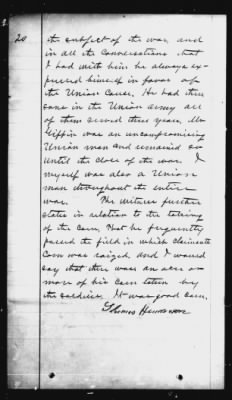 20
the subject of the war and
in all the conversations that
I had with him he always ex-
pressed himself in favor of
the Union Cause. He had three
sons in the Union army all
of them served three years. Mr
Giffin was an uncompromising
Union man and remained so
until the close of the war. I
myself was also a Union
man throughout the entire
war. The witness further
states in relation to the taking
of the corn, that he frequently
passed the field in which claimants
corn was raised, and I would
say that there was an acre or
more of his corn taken by
the soldiers. It was good corn.
Thomas